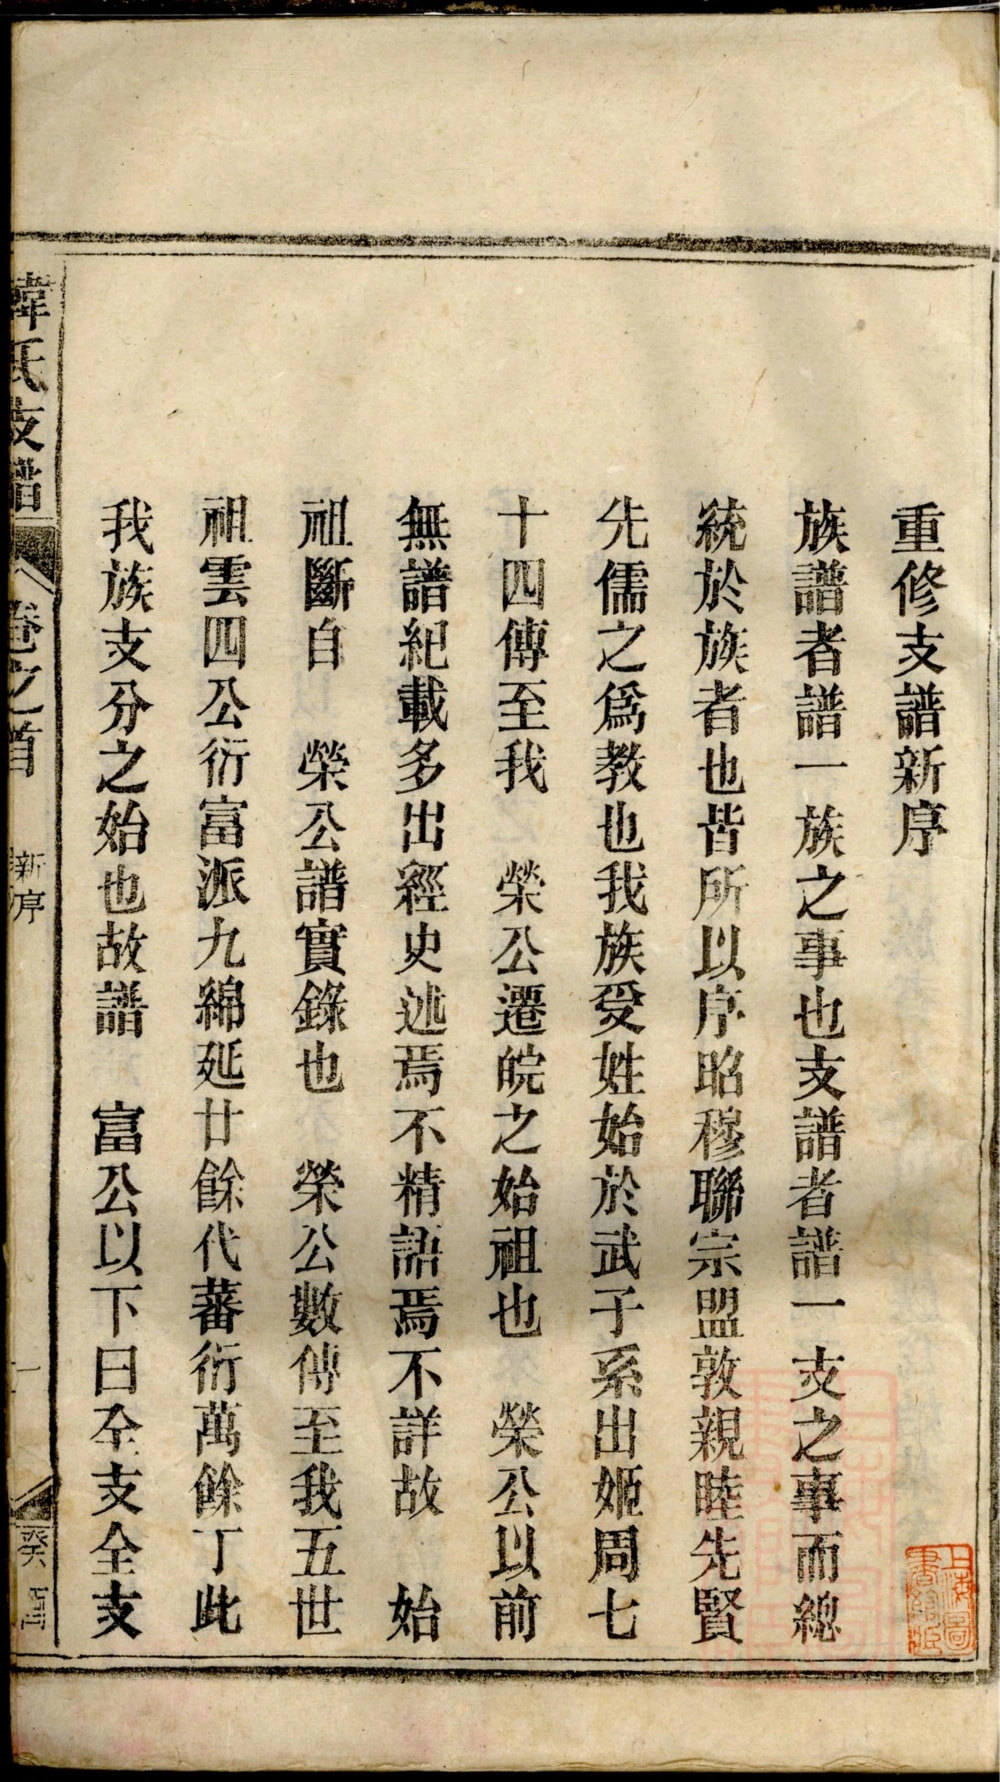 重修支譜新序
族譜者譜一族之事也支譜者譜一支之事而總
統於族者也皆所以序昭穆聯宗盟敦親睦先賢
先儒之爲教也我族受姓始於武子系出姬周七
十四傳至我　榮公遷皖之始祖也　榮公以前
無譜紀載多出經史述焉不精語焉不詳故　始
祖斷自　榮公譜實錄也　榮公數傳至我五世
祖雲四公衍富派九綿延廿餘代蕃衍萬餘丁此
我族支分之始也故譜　富公以下曰全支全支
韓氏支譜　卷之首　新序　一　癸酉
上海圖書館藏